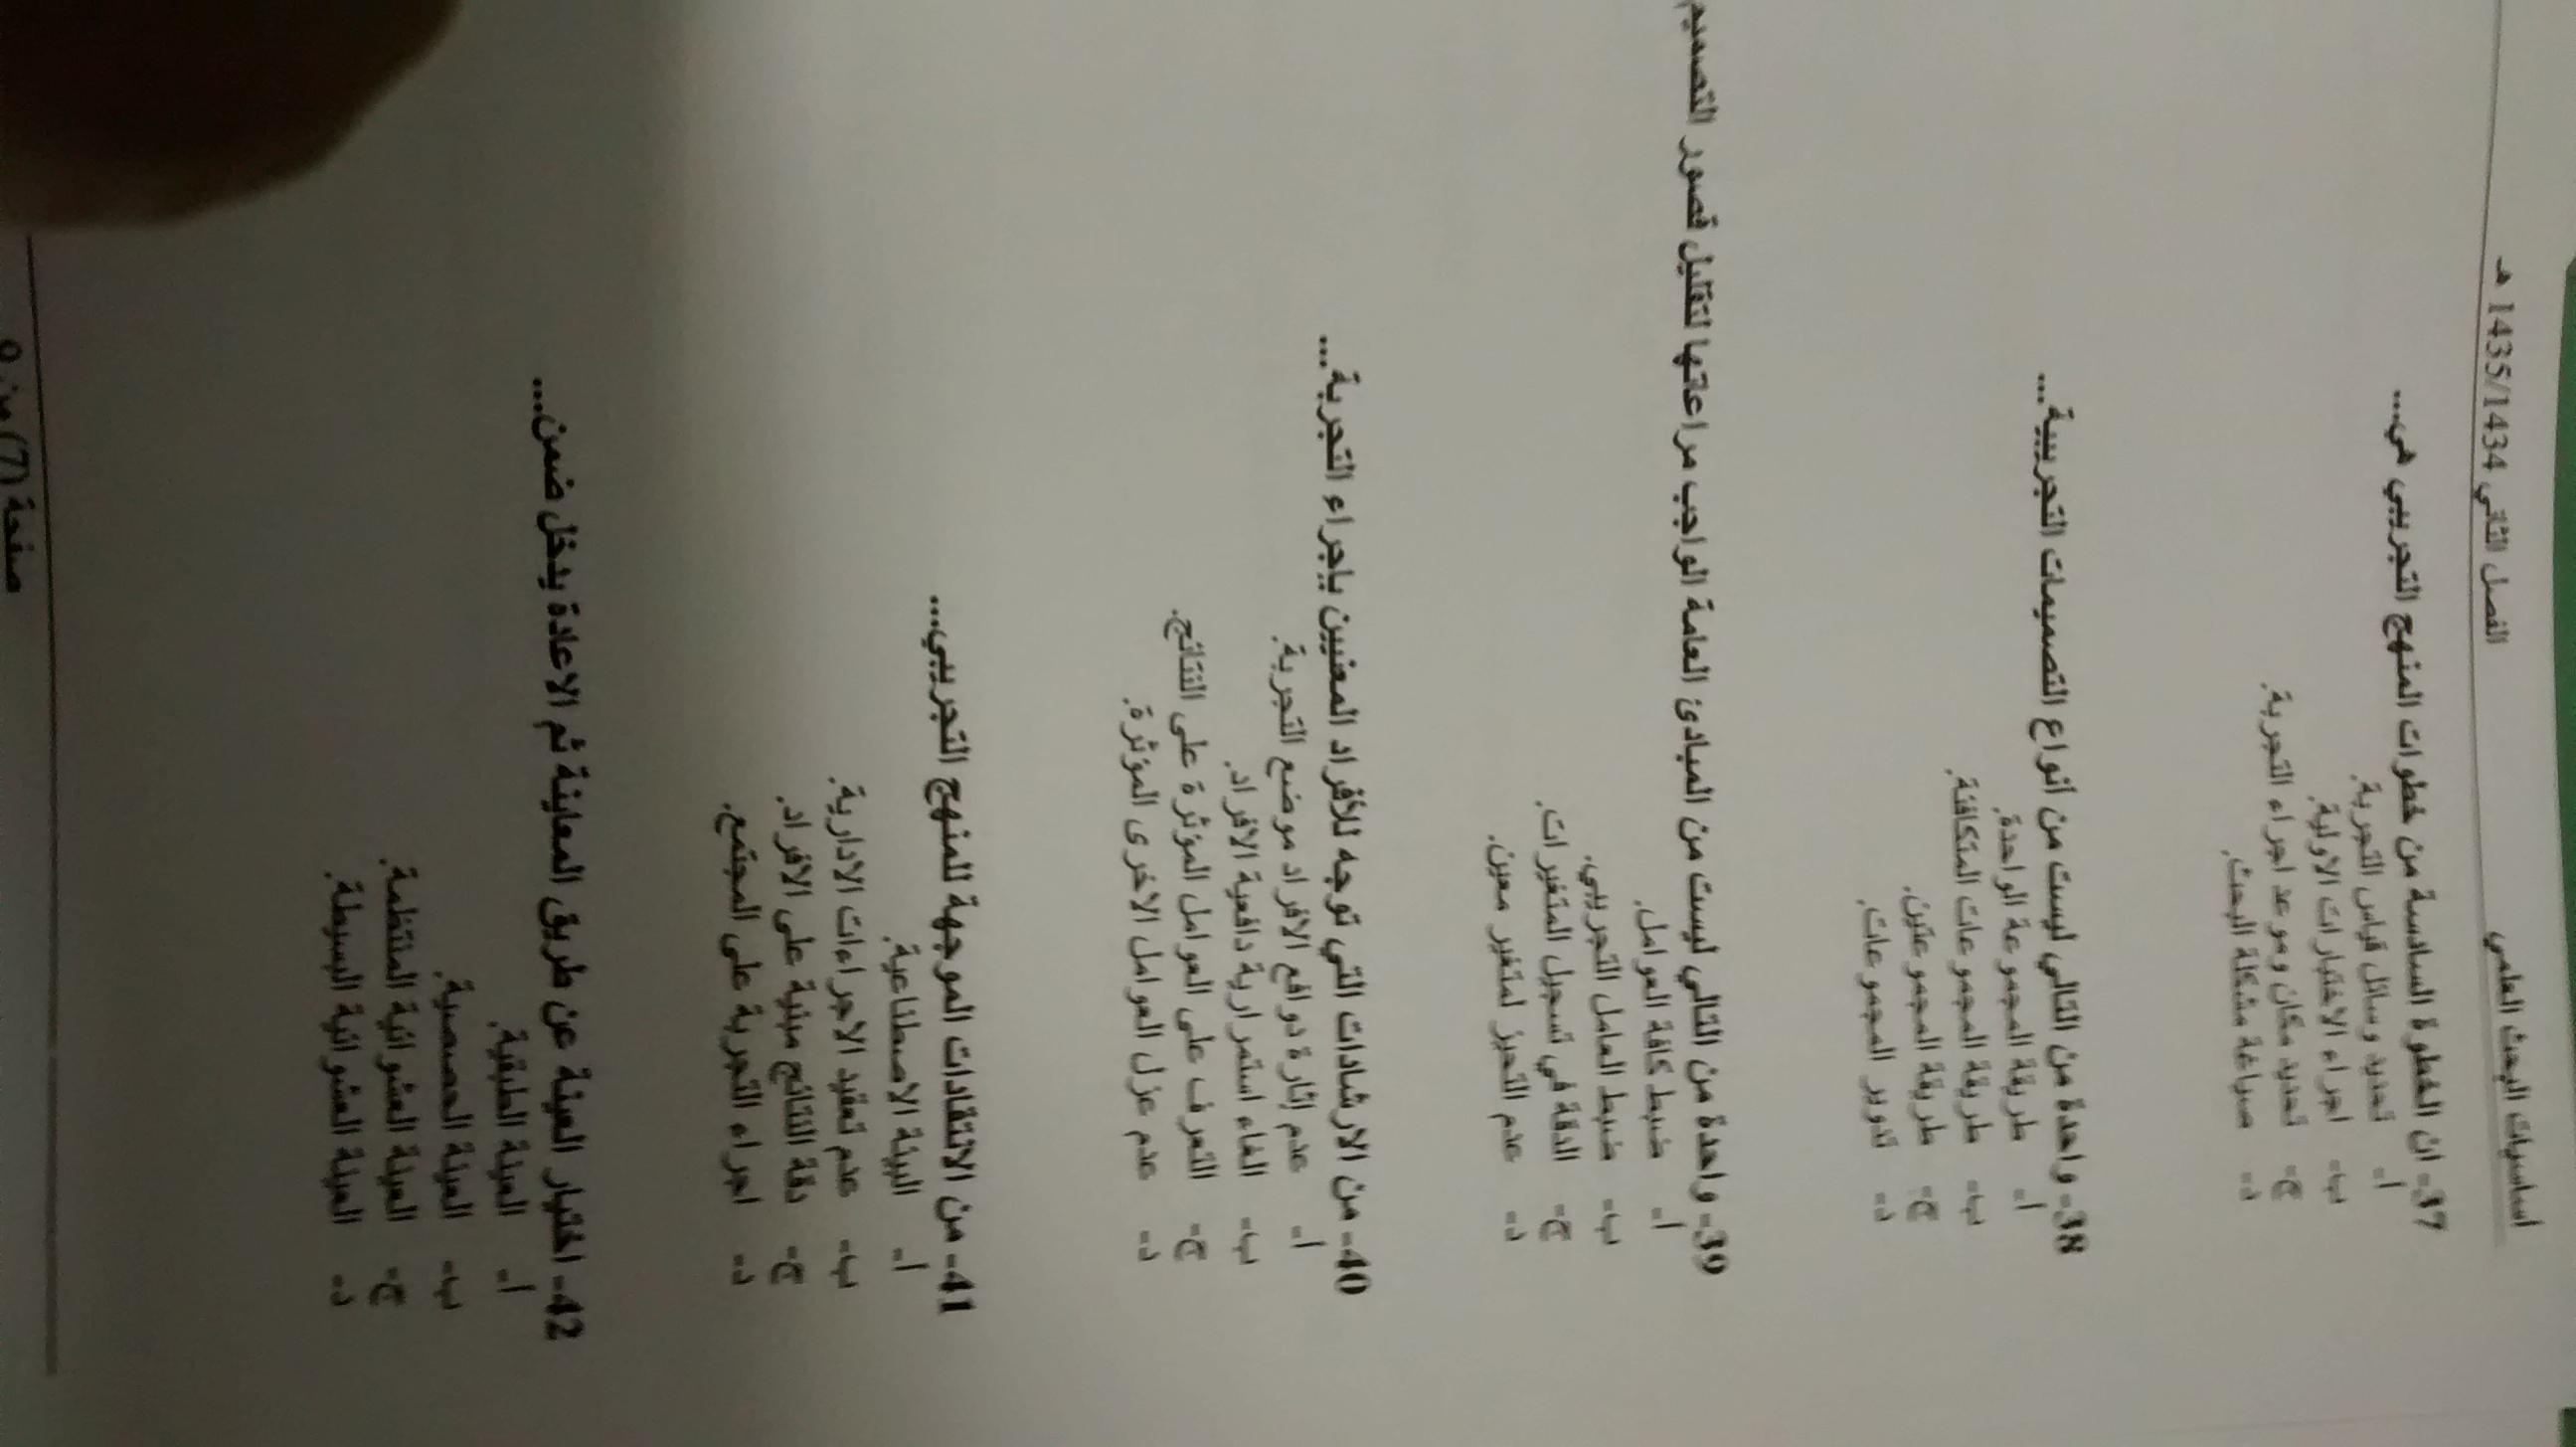 اساسيات البحث العلمي الفصل الثاني 1435/1434 هـ
37- ان الخطوة السادسة من خطوات المنهج التجريبي هي...
أ- تحديد وسائل قياس التجربة.
ب- اجراء الاختبارات الاولية.
ج- تحديد مكان وموعد اجراء التجربة.
د- صياغة مشكلة البحث.
38- واحدة من التالي ليست من أنواع التصميمات التجريبية...
أ- طريقة المجموعة الواحدة.
ب- طريقة المجموعات المتكافئة.
ج- طريقة المجموعتين.
د- تدوير المجموعات.
39- واحدة من التالي ليست من المبادئ العامة الواجب مراعاتها لتقليل قصور التصميم
أ- ضبط كافة العوامل.
ب- ضبط العامل التجريبي.
ج- الدقة في تسجيل المتغيرات.
د- عدم التحيز لمتغير معين.
40- من الارشادات التي توجه للأفراد المعنيين بإجراء التجربة...
أ- عدم إثارة دوافع الافراد موضع التجربة.
ب- الغاء استمرارية دافعية الافراد.
ج- التعرف على العوامل المؤثرة على النتائج.
د- عدم عزل العوامل الاخرى المؤثرة.
41- من الانتقادات الموجهة للمنهج التجريبي...
أ- البيئة الاصطناعية.
ب- عدم تعقيد الاجراءات الادارية.
ج- دقة النتائج مبنية على الافراد.
د- اجراء التجربة على المجتمع.
42- اختيار العينة عن طريق المعاينة ثم الاعادة يدخل ضمن...
أ- العينة الطبقية.
ب- العينة الحصصية.
ج- العينة العشوائية المنتظمة.
د- العينة العشوائية البسيطة.
صفحة (7) من